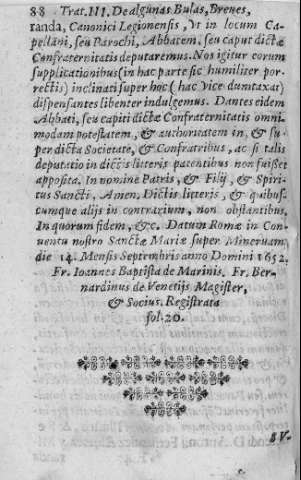 88 Trat. III. De algunas Bulas, Breues,
randa, Canonici Legionensis, Vt in locum Ca-
pellani, seu Parochi, Abbatem, seu caput dictæ
Confraternitatis deputaremus. Nos igitur eorum
supplicationibus (in hac parte sic humiliter por-
rectis) inclinati super hoc (hac vice dumtaxat)
dispensantes libenter indulgemus. Dantes eidem
Abbati, seu capiti dictæ Confraternitatis omni-
modam potestatem, & authoritatem in, & su-
per dicta Societate, & Confratribus, ac si talis
deputatio in dictis litteris patentibus non fuisset
apposita. In nomine Patris, & Filij, & Spiri-
tus Sancti, Amen. Dictis litteris, & quibus-
cumque alijs in contrarium, non obstantibus.
In quorum fidem, &c. Datum Romæ in Con-
uentu nostro Sanctæ Mariæ super Mineruam,
die 14. Mensis Septembris anno Domini 1652.
Fr. Ioannes Baptista de Marinis. Fr. Ber-
nardinus de Venetijs Magister,
& Socius. Registrata
fol. 20.